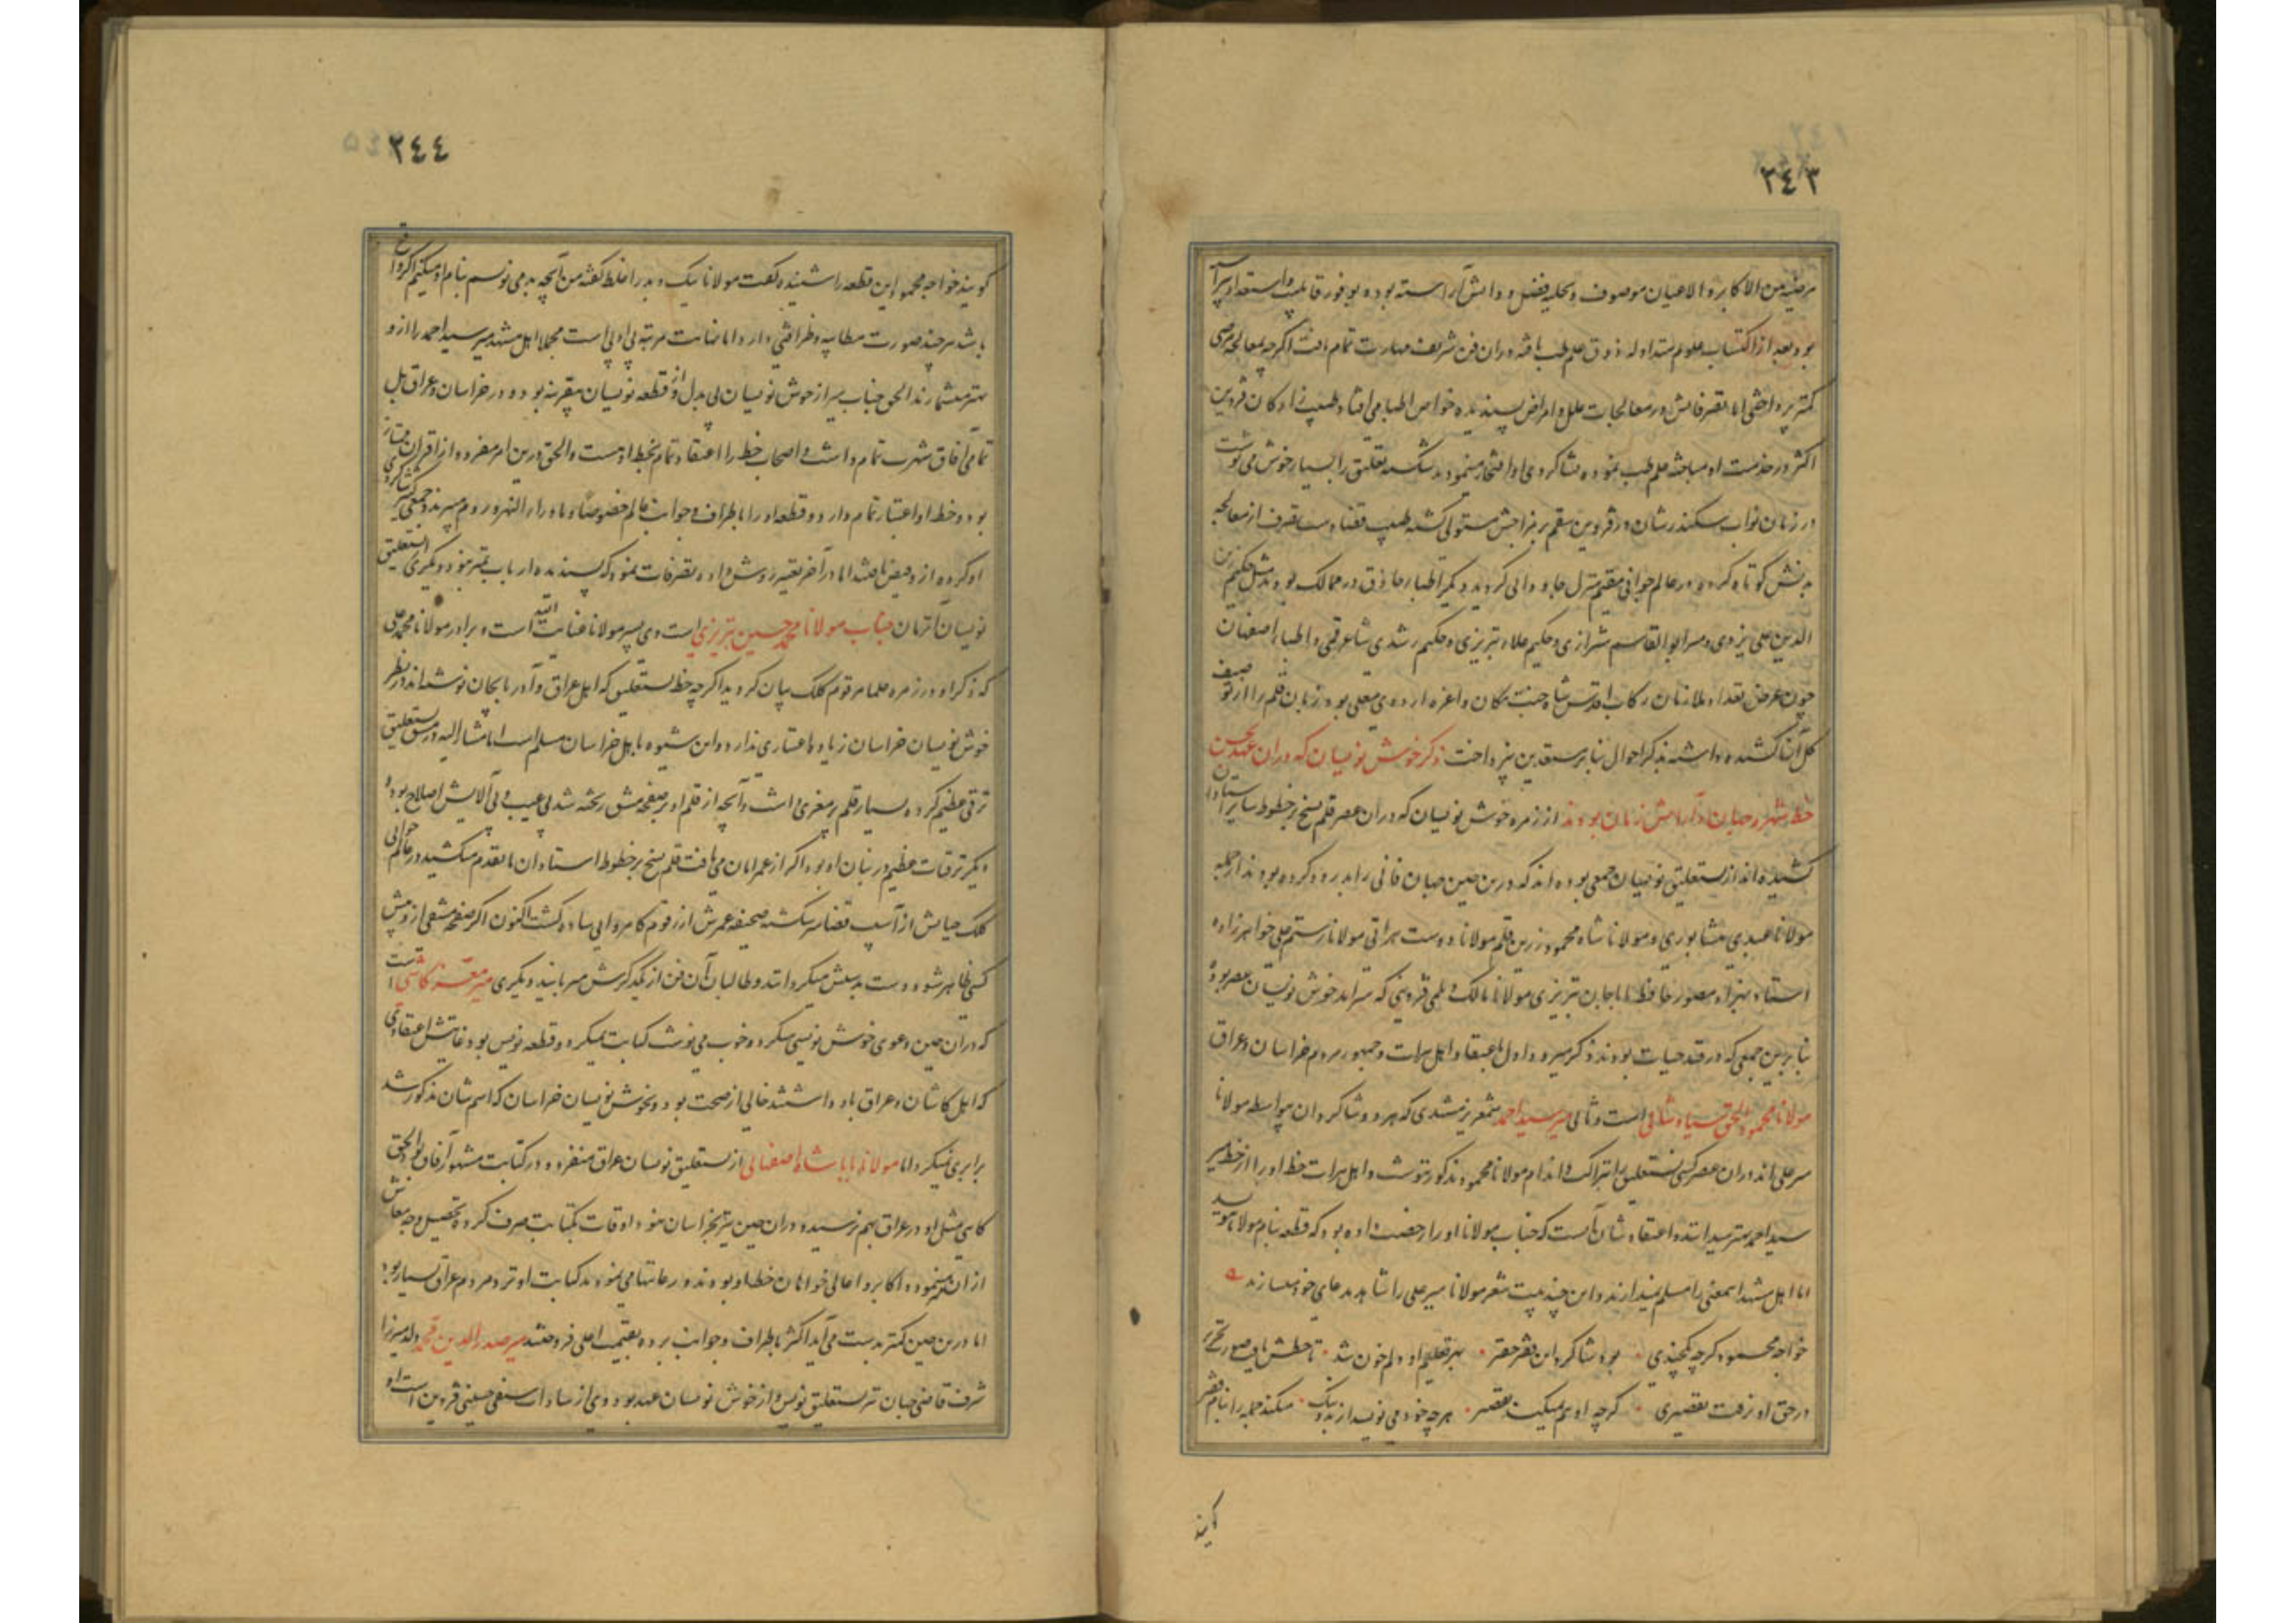 ٢٤٣
مرضیه بین الاکابر و الاعیان موصوف و بحلیه فضل و دانش آراسته بوده بوفور قابلیت و استعداد پیراسته
بود بعد از اکتساب علوم متداوله ذوق علم طب یافته در آن فن شریف مهارت تمام یافت اگرچه بمعالجه مرضی
کمتر پرداختی اما تصرفاتش در معالجات علل و امراض پسندیده خواص اطبا می افتاد و طبیب زادکان قزوین
اکثر در خدمت او مباحثه علم طب نموده بشاکردی او افتخار مینمودند شکسته تعلیق را بسیار خوش می نوشت
در زمان نواب سکندرشان در قزوین سقم بر مزاجش مستولی کشته طبیب قضا دست تصرف از معالجه
بدنش کوتاه کرده در عالم جوانی مقیم منزل جاودانی کردید دیکر اطباء حاذق در ممالک بودند مثل حکیم زین
الدین علی یزدی و میر ابوالقاسم شیرازی و حکیم علاء تبریزی و حکیم رشدی شاعر قمی و اطباء اصفهان
چون غرض تعداد ملازمان رکاب اقدس شاه جنت مکان و اعزه اردوی معلی بود زبان قلم را از توصیف
کل آنها کشیده داشته بذکر احوال سایر مستعدین پرداخت ذکر خوش نویسان که در آن عهد بحسن
خط شهره جهان و آرامش زمان بودند از زمره خوش نویسان که در آن عصر قلم نسخ بر خطوط سایر استادان
کشیده اند از نستعلیق نویسان جمعی بوده اند که درین حین جهان فانی را بدرود کرده بودند از جمله
مولانا عبدی نیشابوری و مولانا شاه محمود زرین قلم مولانا دوست هراتی مولانا رستم علی خواهرزاده
استاد بهزاد مصور حافظ باباجان تبریزی مولانا مالک دیلمی قزوینی که سرآمد خوش نویسان عصر بوده
بنابرین جمعی که در قید حیات بودند ذکر میرود اول باعتقاد اهل هرات و جمهور مردم خراسان و عراق
مولانا محمود اسحق سیاوشانی است و ثانی میر سید احمد شمع ریز مشهدی که هر دو شاکردان بیواسطه مولانا
میر علی اند در آن عصر کسی نستعلیق را بنزاکت و اندام مولانا محمود مذکور ننوشت و اهل هرات خط او را از خط میر
سید احمد بهتر میدانند و اعتقاد شان آنست که جناب مولانا او را رخصت داده بود که قطعه بنام مولانا نویسد
اما اهل مشهد اینمعنی را مسلم نمیدارند و این چند بیت شعر مولانا میر علی را شاهد مدعای خود میسازند
خواجه محمود کرچه یکچندی بود شاکرد این فقیر حقیر بهر تعلیم او دلم خون شد تا خطش یافت صورت تحریر
در حق او نرفت تقصیری کرچه او هم نمیکند تقصیر هرچه خود می نویسد از بد و نیک میکند جمله را بنام فقیر
کویند
٢٤٤
کویند خواجه محمود این قطعه را شنیده کفت مولانا نیک و بد را غلط کفته من آنچه بد می نویسم بنام او میکنم اکر واقع
باشد هرچند صورت مطایبه و ظرافتی دارد اما بغایت مرتبه بی ادبی است مجملا اهل مشهد میر سید احمد را ازو
بهتر میشمارند الحق جناب میر از خوش نویسان بی بدل و از قطعه نویسان بیقرینه بود و در خراسان و عراق بل
تمامی آفاق شهرت تمام داشت و اصحاب خط را اعتقاد تمام بخط اوست و الحق درین امر مفرد و از اقران ممتاز
بود و خط او اعتبار تمام دارد و قطعه او را باطراف و جوانب عالم خصوصا ماوراء النهر و روم میبرند و جمعی کثیر شاکردی
او کرده ازو فیض یافتند اما در آخر تغییر روش داده تصرفات نمود که پسندیده ارباب تمیز نبود دیکری از نستعلیق
نویسان آنزمان جناب مولانا محمد حسین تبریزی است وی پسر مولانا عنایت الله است و برادر مولانا محمد علی
که ذکر او در زمره علما مرقوم کلک بیان کردید اکرچه خط نستعلیق که اهل عراق و آذربایجان نوشته اند در نظر
خوش نویسان خراسان زیاده اعتباری ندارد و این شیوه باهل خراسان مسلم است اما مشارالیه در مشق نستعلیق
ترقی عظیم کرده بسیار قلم پرمغزی داشت و آنچه از قلم او بر صفحه مشق ریخته شد بی عیب و بی آلایش اصلاح بوده
دیکر ترقیات عظیم در بنان او بود اکر از عمر امان می یافت قلم نسخ بر خطوط استادان ماتقدم میکشید در عالم جوانی
کلک حیاتش از آسیب قضا شکسته صحیفه عمرش از رقوم کامروایی ساده کشت اکنون اکر صفحه مشقی ازو پیش
کسی ظاهر شود دست بدستش میکردانند و طالبان آن فن از یکدیکرش میربایند دیکری میر معز کاشی است
که در آن حین دعوی خوش نویسی میکرد و خوب می نوشت کتابت میکرد و قطعه نویس بود غایتش اعتقادی
که اهل کاشان و عراق باو داشتند خالی از صحت بود و بخوش نویسان خراسان که اسم شان مذکور شد
برابری نمیکرد اما مولانا بابا شاه اصفهانی از نستعلیق نویسان عراق منفرد و در کتابت مشهور آفاق بود الحق
کاتبی مثل او در عراق بهم نرسیده در آن حین سیر خراسان نمود اوقات بکتابت صرف کرده تحصیل وجه معاش
از آن مینمود و اکابر و اعالی خواهان خط او بودند و رعایتها می نمودند کتابت او نزد مردم عراق بسیار بود
اما درین حین کمتر بدست می آید اکثر باطراف و جوانب برده بقیمت اعلی فروختند میر صدر الدین محمد ولد میرزا
شرف قاضی جهان نیز نستعلیق نویس و از خوش نویسان عهد بود وی از سادات سیفی حسینی قزوین است او